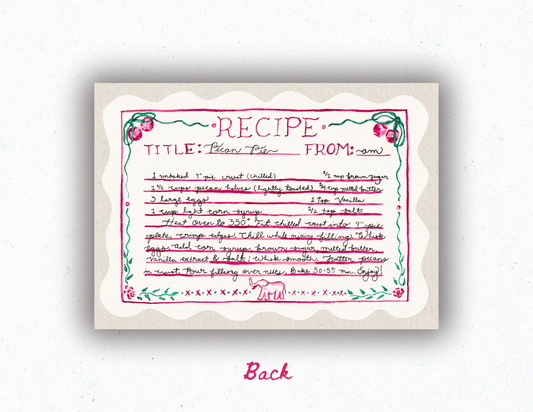 RECIPE
TITLE: Pecan Pie FROM: am
1 unbaked 9" pie crust (chilled) 1/2 cup brown sugar
1 1/2 cups pecan halves (lightly toasted) 1/4 cup melted butter
3 large eggs 1 Tsp Vanilla
1 cup light corn syrup 1/2 tsp salt
Heat oven to 350° Fit chilled crust into 9" pie
plate, crimp edges. Chill while mixing filling. Whisk
eggs, add corn syrup, brown sugar, melted butter,
vanilla extract & salt. Whisk smooth. Scatter pecans
in crust. Pour filling over nuts. Bake 50-55 min. Enjoy!
Back